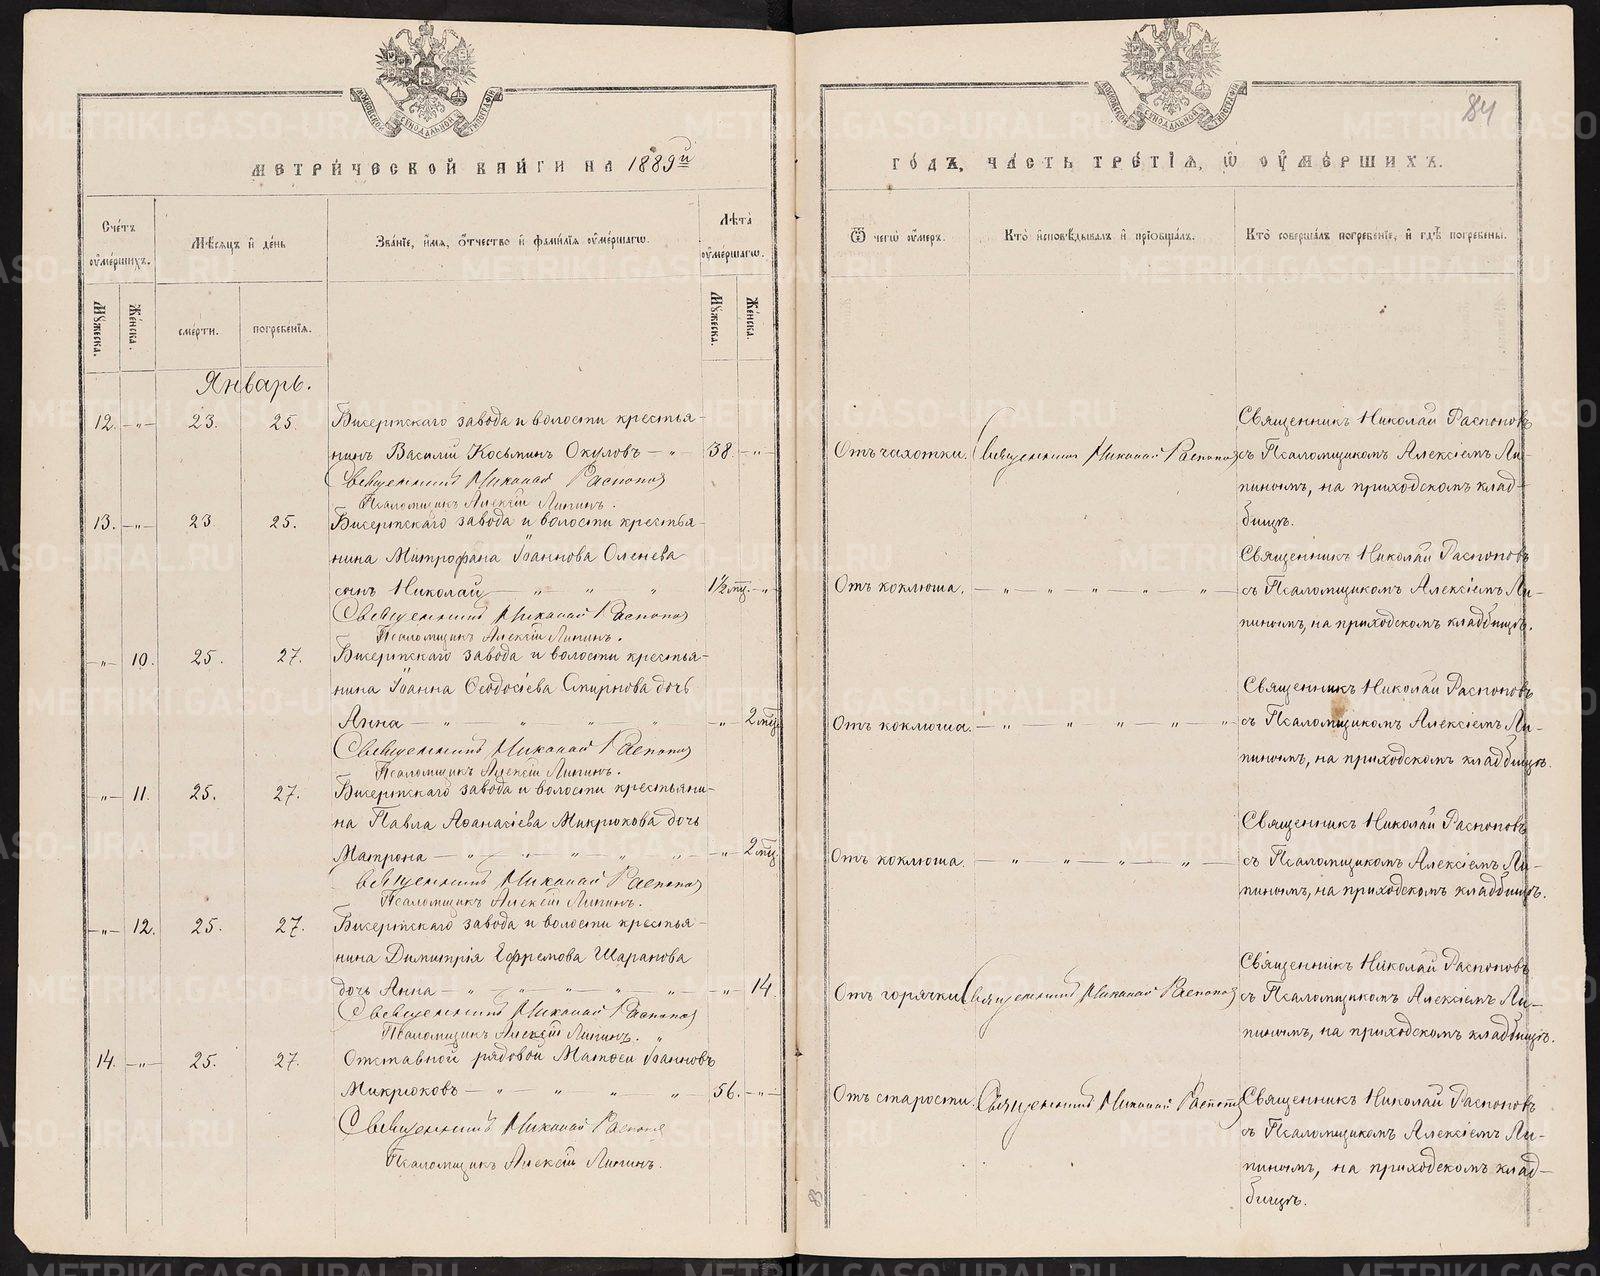 МОСКОВСКОЙ СѴНОДАЛЬНОЙ ТИПОГРАФІИ
МОСКОВСКОЙ СѴНОДАЛЬНОЙ ТИПОГРАФІИ
84
МЕТРИЧЕСКОЙ КНИГИ НА 1889й
ГОДЪ, ЧАСТЬ ТРЕТІЯ, Ѿ ОУМЕРШИХЪ.
Счетъ оумершихъ.
Мѣсяцъ и день
Званіе, имя, отчество и фамилія оумершагѡ.
Лѣта оумершагѡ.
Ѿ чегѡ оумеръ.
Кто исповѣдывалъ и пріобщалъ.
Кто совершалъ погребеніе, и гдѣ погребены.
Мужеска.
Женска.
смерти.
погребенія.
Мужеска.
Женска.
Январь.
12. -„- 23. 25. Бисертскаго завода и волости крестья-
нинъ Василій Косьминъ Окуловъ - „ 38. -„-
Священникъ Николай Распопов
Псаломщикъ Алексій Липинъ.
Отъ чахотки. Священник Николай Распопов
Священникъ Николай Распоповъ
съ Псаломщикомъ Алексіемъ Ли-
пинымъ, на приходскомъ клад-
бищѣ.
13. -„- 23 25. Бисертскаго завода и волости крестья-
нина Митрофана Іоаннова Оленева
сынъ Николай - „ „ „ 1½ мц. -„-
Священникъ Николай Распопов
Псаломщикъ Алексій Липинъ.
Отъ коклюша. - „ - „ - „ - „ - „ -
Священникъ Николай Распоповъ
съ Псаломщикомъ Алексіемъ Ли-
пинымъ, на приходскомъ кладбищѣ.
-„- 10. 25. 27. Бисертскаго завода и волости крестья-
нина Іоанна Ѳеодосіева Смирнова дочь
Анна - „ - „ - „ - „ -„- 2 мц.
Священникъ Николай Распопов
Псаломщикъ Алексій Липинъ.
Отъ коклюша. - „ - „ - „ - „ - „
Священникъ Николай Распоповъ
съ Псаломщикомъ Алексіемъ Ли-
пинымъ, на приходскомъ кладбищѣ.
-„- 11. 25. 27. Бисертскаго завода и волости крестьяни-
на Павла Аѳанасіева Микрюкова дочь
Матрона - „ - „ - „ - „ - „ -„- 2 мц.
Священникъ Николай Распопов
Псаломщикъ Алексій Липинъ.
Отъ коклюша. - „ - „ - „ - „ -
Священникъ Николай Распоповъ
съ Псаломщикомъ Алексіемъ Ли-
пинымъ, на приходскомъ кладбищѣ.
-„- 12. 25. 27. Бисертскаго завода и волости крестья-
нина Димитрія Ефремова Шарапова
дочь Анна - „ - „ - „ - „ - „ -„- 14.
Священникъ Николай Распопов
Псаломщикъ Алексій Липинъ. „
Отъ горячки. Священникъ Николай Распопов
Священникъ Николай Распоповъ
съ Псаломщикомъ Алексіемъ Ли-
пинымъ, на приходскомъ кладбищѣ.
14. -„- 25. 27. Отставной рядовой Матѳей Іоанновъ
Микрюковъ - „ - „ - „ - „ 56. -„-
Священникъ Николай Распопов
Псаломщикъ Алексій Липинъ.
Отъ старости. Священникъ Николай Распопов
Священникъ Николай Распоповъ
съ Псаломщикомъ Алексіемъ Ли-
пинымъ, на приходскомъ клад-
бищѣ.
83
METRIKI.GASO-URAL.RU